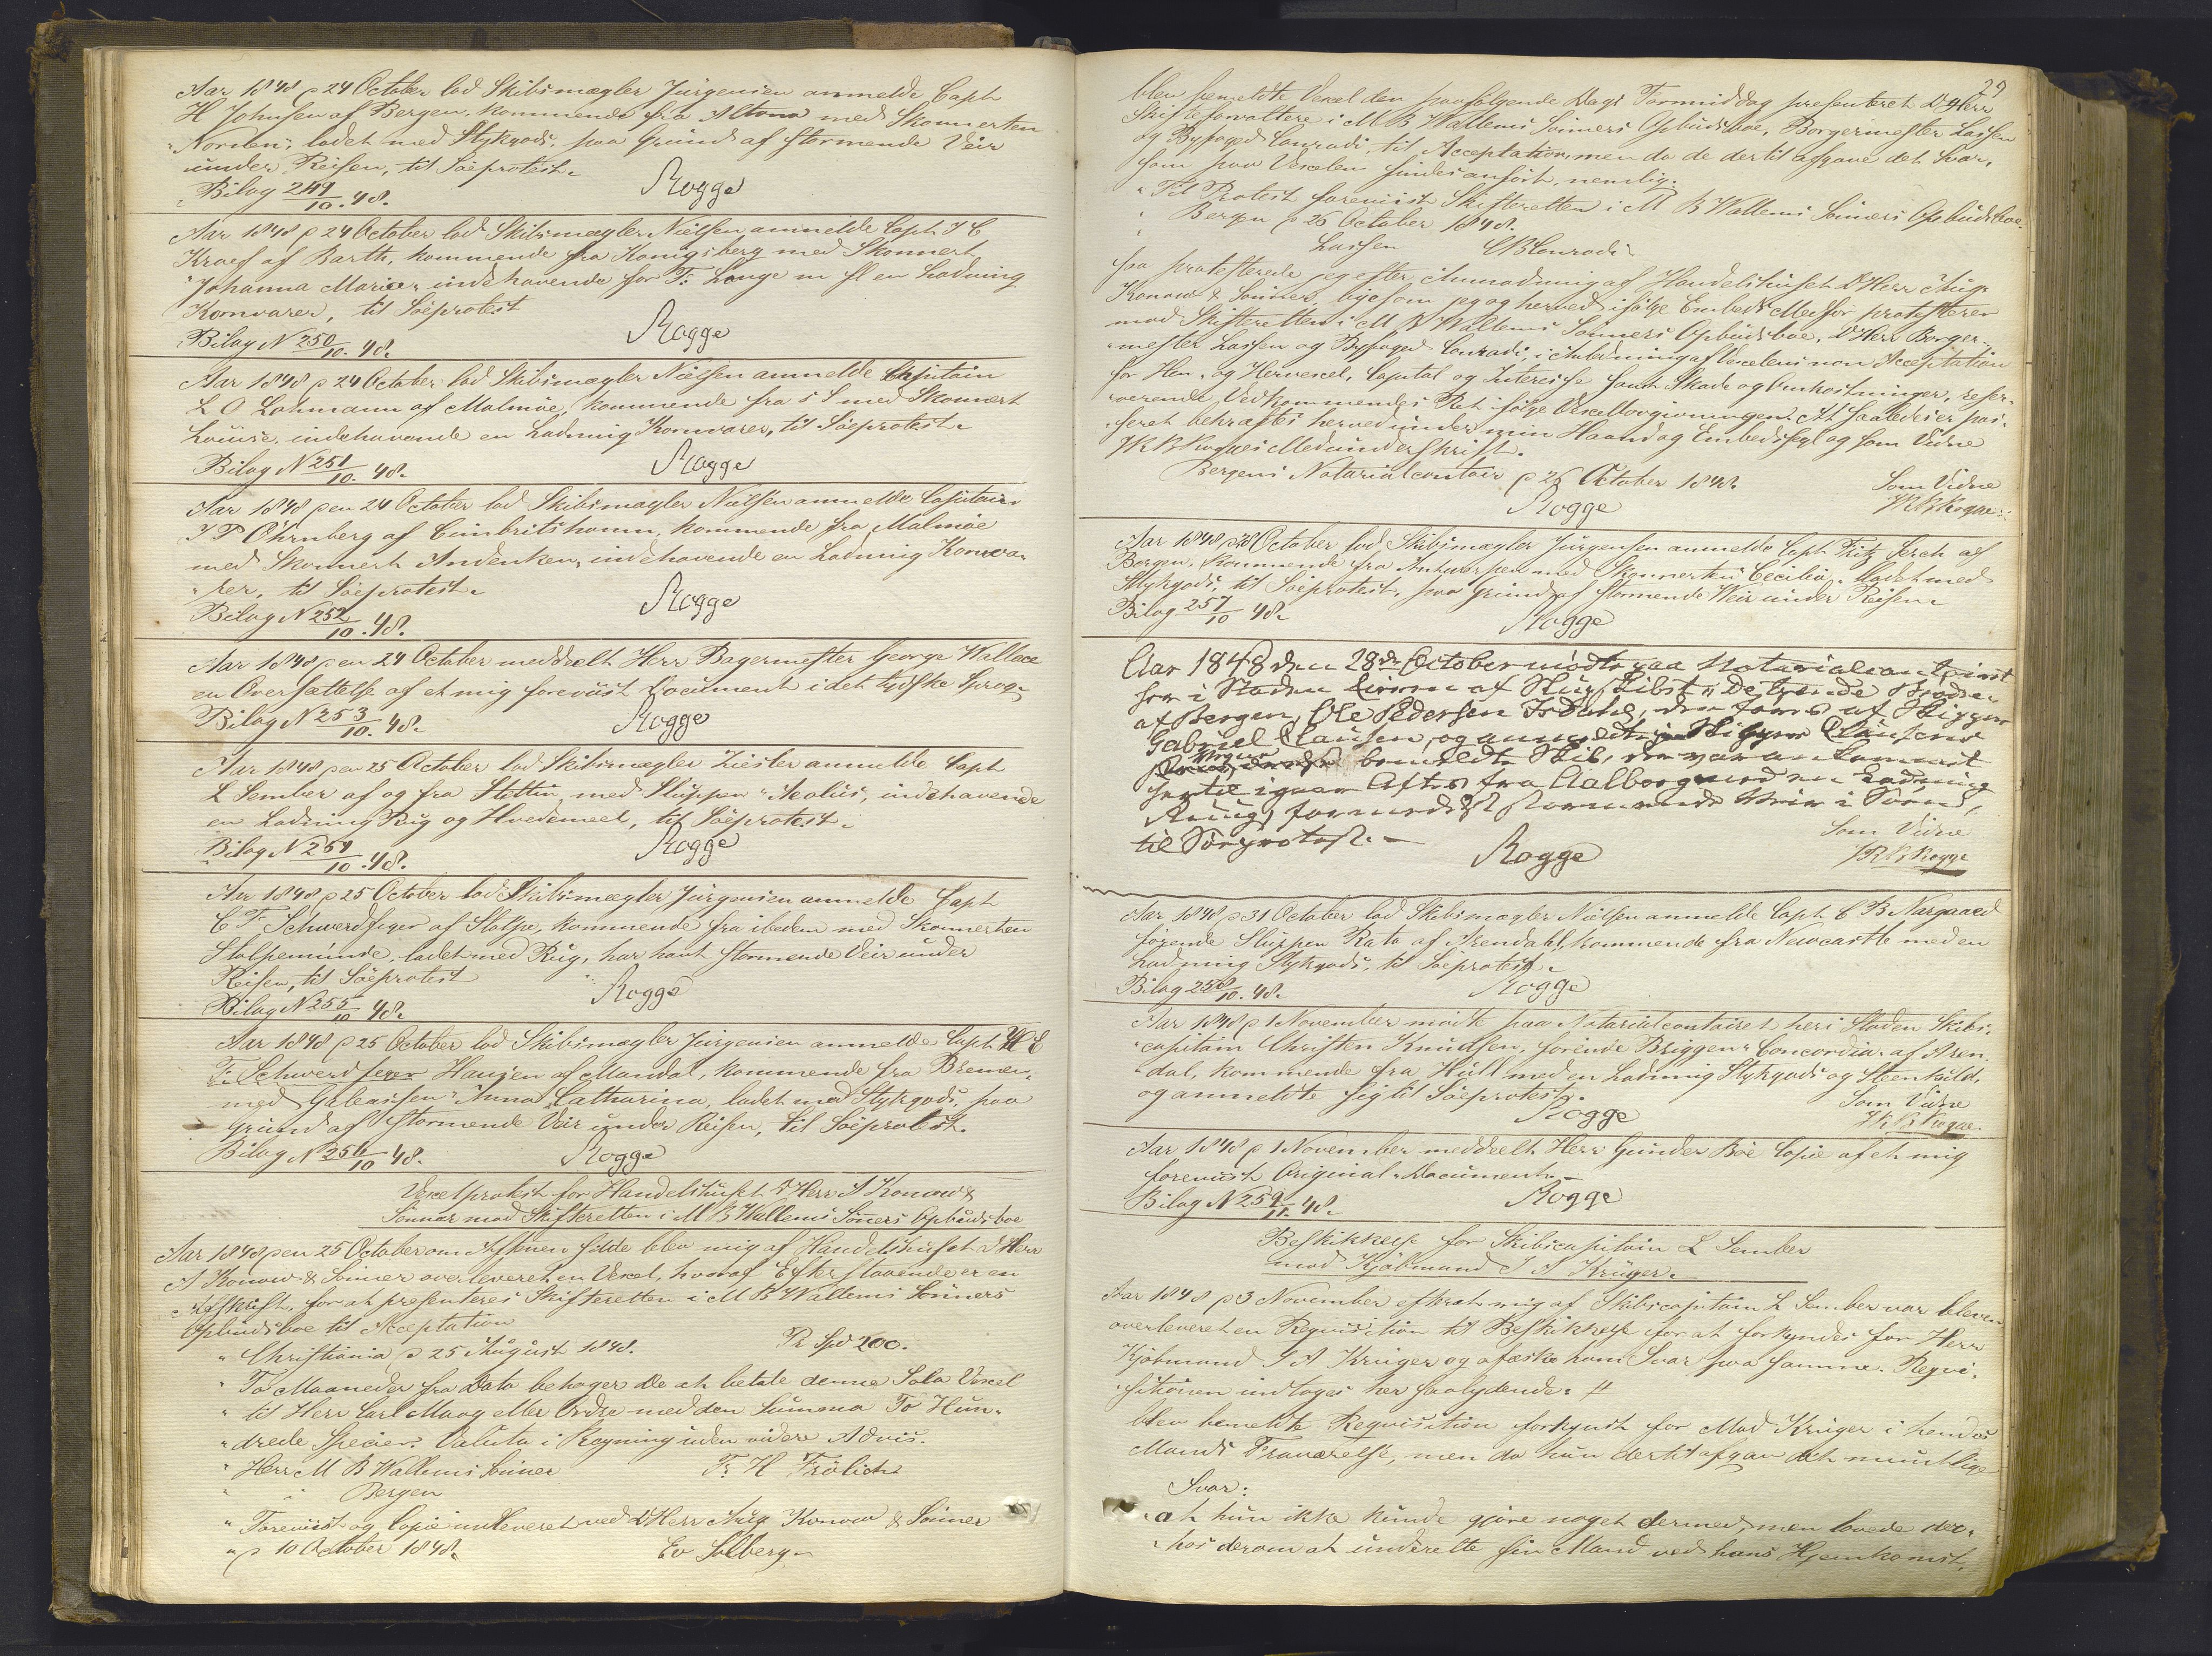 Aar 1848 p 24 October lod Skibsmægler Jürgensen anmelde Capt
H Johnsen af Bergen, kommende fra Altona med Skonnerten
"Norden", ladet med Stykgods, paa Grund af stormende Veir
under Reisen, til Söeprotest.
Bilag 249/10. 48. Rogge
Aar 1848 p 24 October lod Skibsmægler Nielsen anmelde Capt J C
Kraeft af Barth, kommende fra Königsberg med Skonnert
"Johanna Maria" indehavende for F: Lange m fl en Ladning
Kornvarer, til Söeprotest
Bilag N 250/10. 48. Rogge
Aar 1848 p 24 October lod Skibsmægler Nielsen anmelde Capitain
L O Lohmann af Malmöe, kommende fra s S med Skonnert
Louise, indehavende en Ladning Kornvarer, til Söeprotest.
Bilag N 251/10. 48. Rogge
Aar 1848 den 24 October lod Skibsmægler Nielsen anmelde Capitain
J P Öhrnberg af Cimbritshamn, kommende fra Malmöe
med Skonnert Andenken, indehavende en Ladning Kornva-
"rer, til Söeprotest.
Bilag N 252/10. 48. Rogge
Aar 1848 den 24 October meddeelt Herr Bagermester George Wallace
en Oversættelse af et mig foreviist Document i det tydske Sprog.
Bilag N 253/10. 48. Rogge
Aar 1848 den 25 October lod Skibsmægler Ziesler anmelde Capt
L Sember af og fra Stettin, med Sluppen "Aeolus", indehavende
en Ladning Rug og Hvedemeel, til Söeprotest.
Bilag N 254/10. 48. Rogge
Aar 1848 p 25 October lod Skibsmægler Jürgensen anmelde Capt
C F: Schwerdfeger af Stolpe, kommende fra ibedem med Skonnerten
Stolpemünde, ladet med Rug, har havt stormende Veir under
Reisen, til Söeprotest
Bilag N 255/10 48. Rogge
Aar 1848 p 25 October lod Skibsmægler Jürgensen anmelde Capt
F: Schwerdfeger Hansen af Mandal, kommende fra Bremen,
med Galeassen "Anna Catharina, ladet med Stykgods, paa
Grund af stormende Veir under Reisen, til Söeprotest.
Bilag N 256/10 48. Rogge
Vexelprotest for Handelshuset D'Herr A Konow &
Sönner mod Skifteretten i M B Wallems Sönners Opbudsboe
Aar 1848 den 25 October om Aftenen silde blev mig af Handelshuset D'Herr
A Konow & Sönner overleveret en Vexel, hvoraf Efterstaaende er en
Afskrift, for at presenteres Skifteretten i M B Wallems Sönners
Opbudsboe til Acceptation
" Christiania p 25 August 1848. Pr Spd 200.
" To Maaneder fra Dato behager De at betale denne Sola Vexel
" til Herr Carl Maag eller Ordre med den Summa To Hun-
" drede Species. Valuta i Regning uden videre Advis.
" Herr M B Wallems Sönner Fr: H Frölich
" i Bergen
" Foreviist og Copie indleveret ved D'Herr Aug Konow & Sönner
" p 10 October 1848. Ev Solberg.
29
blev bemeldte Vexel den paafölgende Dags Formiddag presenteret D'Herr
Skifteforvaltere i M B Wallems Sönners Opbudsboe, Borgermester Lassen
og Byfoged Conradi, til Acceptation, men da de dertil afgave det Svar,
som paa Vexelen findes anfört, nemlig:
" Til Protest foreviist Skifteretten i M B Wallems Sönners Opbudsboe.
" Bergen p 26 October 1848.
" Lassen CB Conradi
saa protesterede jeg efter Anmodning af Handelshuset D'Herr Aug
Konow & Sönner, ligesom jeg og herved ifölge Embeds Medför protesterer
mod Skifteretten i M B Wallems Sönners Opbudsboe, D'Herr Borger-
"mester Lassen og Byfoged Conradi, i Anledning af Vexelens non Acceptation
for Hen- og Hervexel, Capital og Interesse samt Skade og Omkostninger, reser-
"verende Vedkommendes Ret ifölge Vexellovgivningen. At saaledes er pas-
"seret bekræftes herved under min Haand og Embedssegl og som Vidne
JRB Rogges Medunderskrift.
Bergens Notarialcontoir p 26 October 1848. Som Vidne
Rogge JRB Rogge
Aar 1848 p 28 October lod Skibsmægler Jürgensen anmelde Capt Fritz Lerch af
Bergen, kommende fra Antwerpen med Skonnerten Cecilia, ladet med
Stykgods, til Söeprotest, paa Grund af stormende Veir under Reisen.
Bilag 257/10 48. Rogge
Aar 1848 den 28de October mödte paa Notarialcontoiret
her i Staden af Slup Skibet "De trende Brödre
af Bergen, Ole Pedersen Isdahl, der föres af Skipper
Gabriel Clausen, og anmeldte i Skipper Clausens
bemeldte Skib, der var ankommet
hertil igaar Aftes fra Aalborg med en Ladning
Rug, formedelst stormende Veir i Söen,
til Söeprotest. — Som Vidne
Rogge JRB Rogge
Aar 1848 p 31 October lod Skibsmægler Nielsen anmelde Capt C B Nærgaard
förende Sluppen Rota af Arendahl, kommende fra Newcastle med en
Ladning Stykgods, til Söeprotest.
Bilag 258/10. 48. Rogge
Aar 1848 p 1 November mödte paa Notarialcontoiret her i Staden Skibs-
"capitain Christen Knudsen, förende Briggen "Concordia" af Aren-
"dal, kommende fra Hull med en Ladning Stykgods og Steenkull,
og anmeldte sig til Söeprotest. Som Vidne
Rogge JRB Rogge.
Aar 1848 p 1 November meddeelt Herr Gunder Böe Copie af et mig
foreviist Original-Document.
Bilag N 259/11. 48. Rogge
Beskikkelse for Skibscapitain L Sember
mod Kjöbmand J A Krüger.
Aar 1848 p 3 November efterat mig af Skibscapitain L Sember var bleven
overleveret en Requisition til Beskikkelse for at forkyndes for Herr
Kjöbmand J A Krüger og afæske hans Svar paa samme. Reqvi-
"sitionen indtages her saalydende: #
blev bemeldte Requisition forkyndt for Mad Krüger i hendes
Mands Fraværelse, men da hun dertil afgav det mundtlige
Svar:
"at hun ikke kunde gjöre noget dermed, men lovede der-
"hos derom at underette sin Mand ved hans Hjemkomst,